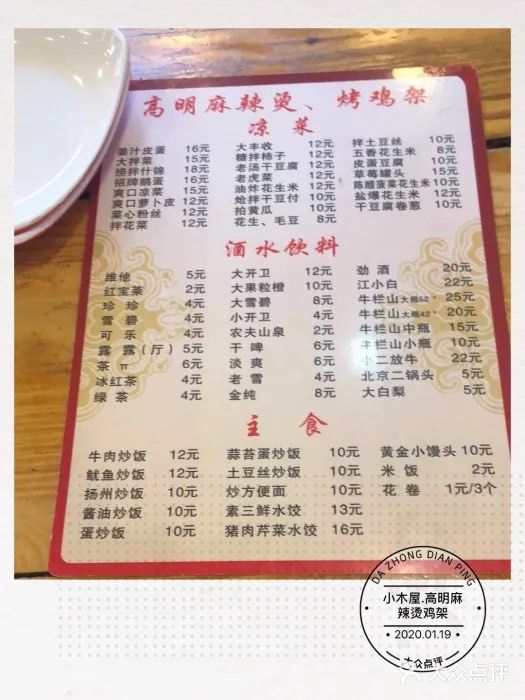 高明麻辣烫、烤鸡架
凉菜
姜汁皮蛋 16元 大丰收 12元 拌土豆丝 10元
大拌菜 15元 糖拌柿子 12元 五香花生米 8元
捞拌什锦 18元 老汤干豆腐 12元 皮蛋豆腐 10元
招牌鹅蛋 16元 老虎菜 12元 草莓罐头 15元
爽口凉菜 15元 油炸花生米 12元 陈醋菠菜花生米 10元
爽口萝卜皮 12元 炝拌干豆付 10元 盐爆花生米 12元
菜心粉丝 12元 拍黄瓜 10元 干豆腐卷葱 10元
拌花菜 12元 花生、毛豆 8元
酒水饮料
维他 5元 大开卫 12元 劲酒 20元
红宝莱 2元 大果粒橙 10元 江小白 22元
珍珍 4元 大雪碧 8元 牛栏山大瓶52° 25元
雪碧 4元 小开卫 4元 牛栏山大瓶42° 20元
可乐 4元 农夫山泉 2元 牛栏山中瓶 15元
露露(厅) 5元 干啤 6元 牛栏山小瓶 10元
茶π 6元 淡爽 6元 小二放牛 22元
冰红茶 4元 老雪 4元 北京二锅头 5元
绿茶 4元 金纯 8元 大白梨 5元
主食
牛肉炒饭 12元 蒜苔蛋炒饭 10元 黄金小馒头 10元
鱿鱼炒饭 12元 土豆丝炒饭 10元 米饭 2元
扬州炒饭 10元 炒方便面 10元 花卷 1元/3个
酱油炒饭 10元 素三鲜水饺 13元
蛋炒饭 10元 猪肉芹菜水饺 16元
DA ZHONG DIAN PING
小木屋.高明麻
辣烫鸡架
2020.01.19
大众点评
大众点评